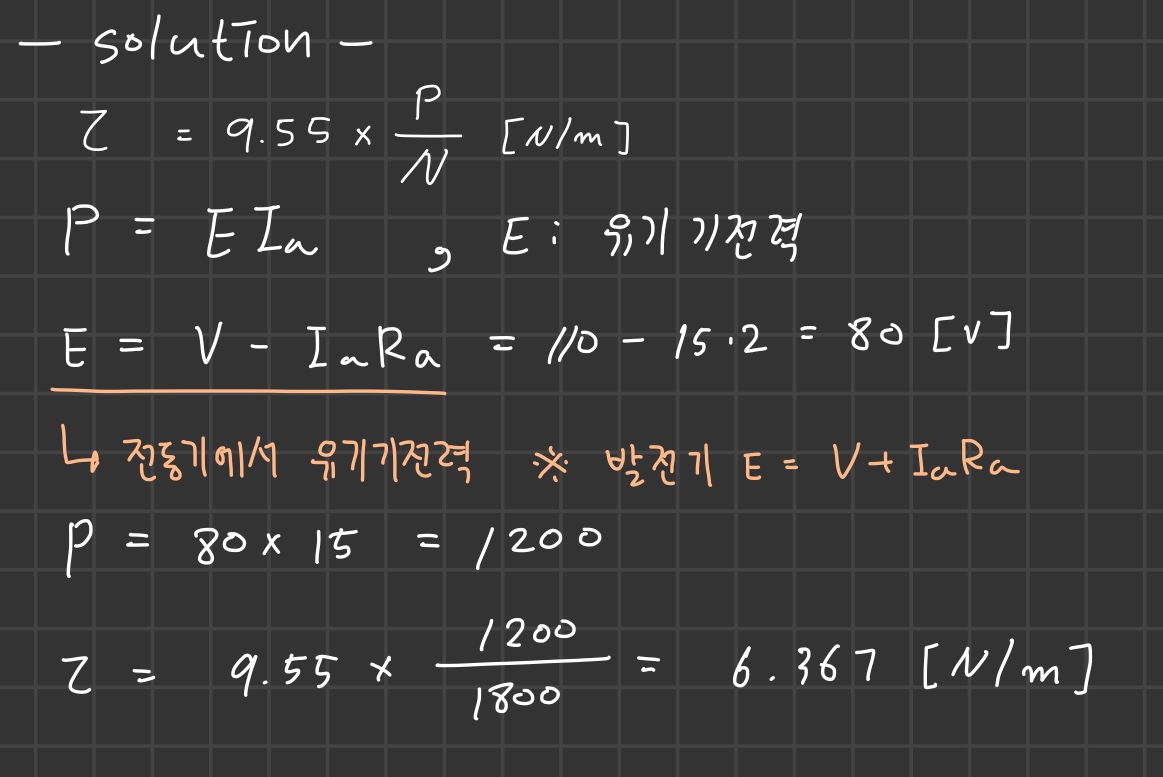 - solution -
τ = 9.55 × P/N [N/m]
P = EIa , E : 유기기전력
E = V - IaRa = 110 - 15·2 = 80 [V]
↳ 전동기에서 유기기전력 ※ 발전기 E = V + IaRa
P = 80 × 15 = 1200
τ = 9.55 × 1200/1800 = 6.367 [N/m]